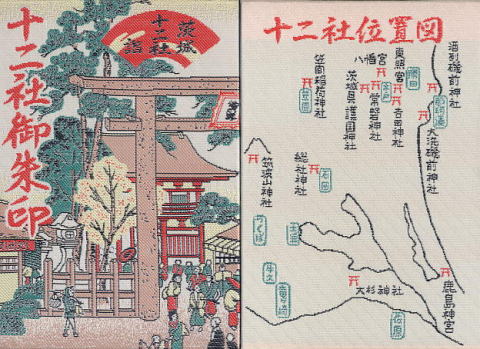 茨城
十二社
詣
十二社御朱印
十二社位置図
酒列磯前神社
東照宮
勝田
八幡宮
水戸
笠間稲荷神社
笠間
茨城県護国神社
常磐神社
吉田神社
那珂湊
大洗磯前神社
総社神社
石岡
筑波山神社
つくば
土浦
牛久
竜ヶ崎
大杉神社
佐原
鹿島神宮